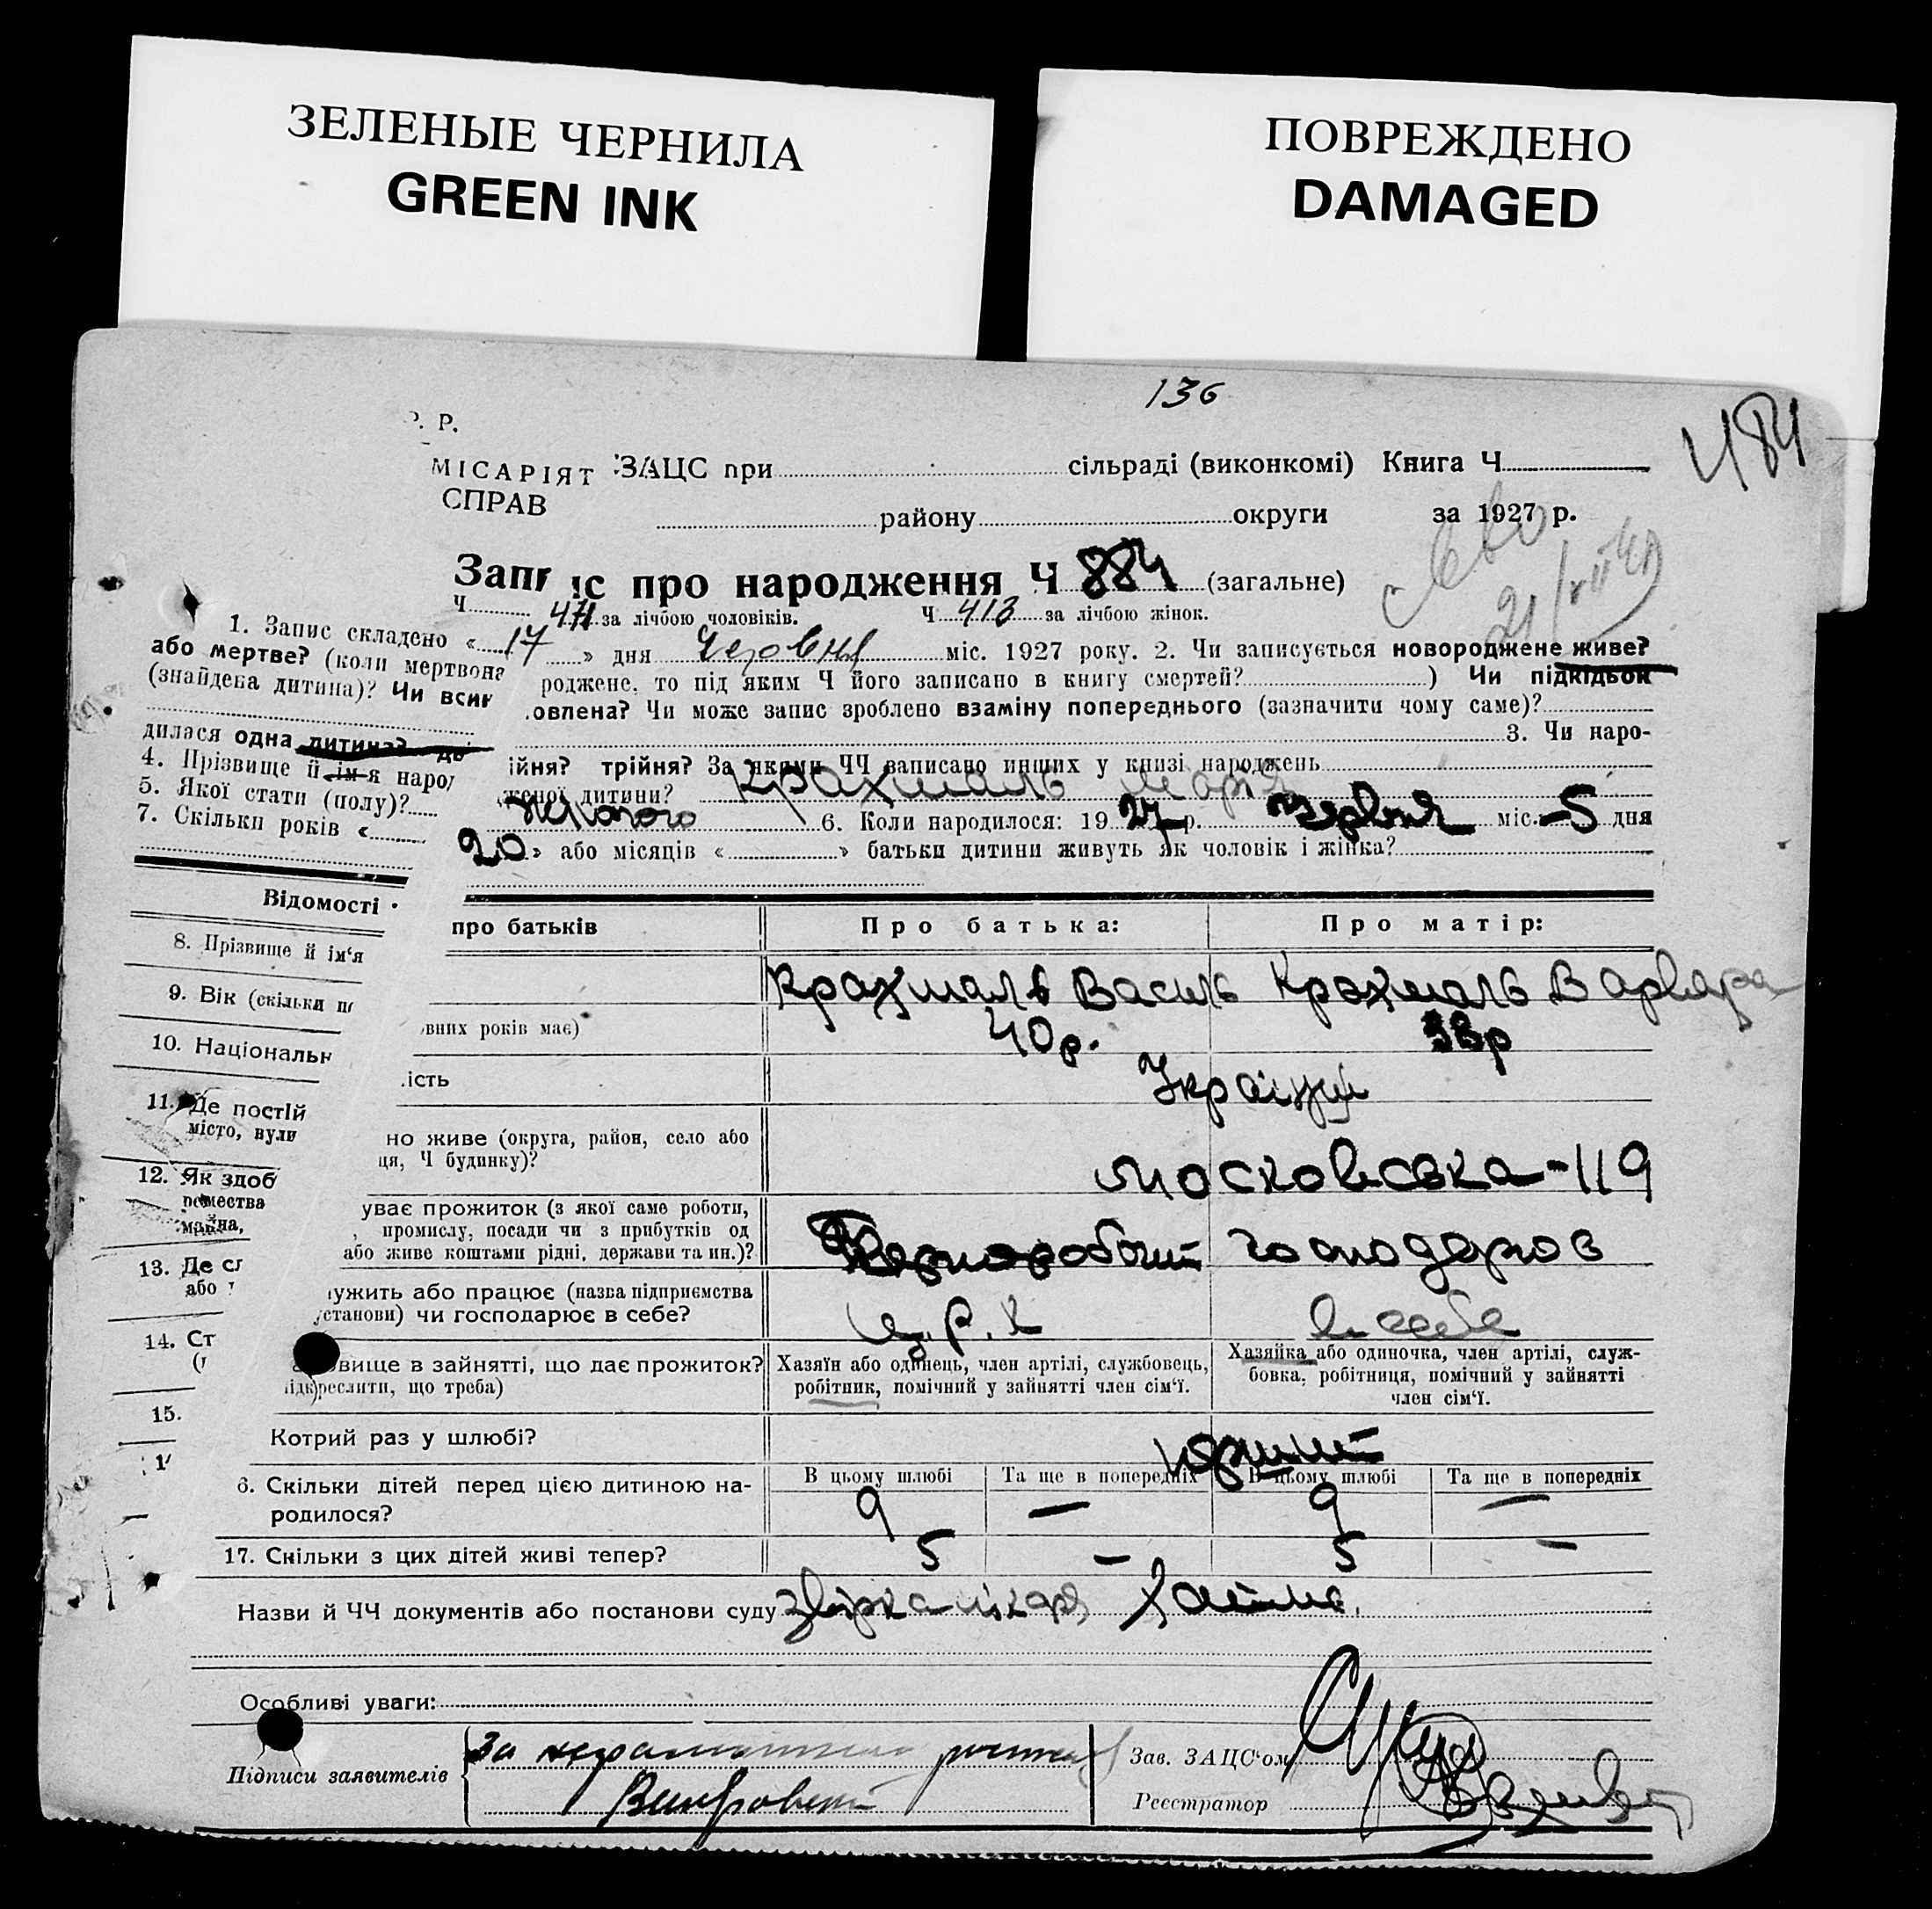 ЗЕЛЕНЫЕ ЧЕРНИЛА
GREEN INK
ПОВРЕЖДЕНО
DAMAGED
136
484
Р. Р.
МІСАРІЯТ ЗАЦС при сільраді (виконкомі) Книга Ч
СПРАВ
району округи за 1927 р.
Запис про народження Ч 884 (загальне)
Ч 471 за лічбою чоловіків. Ч 413 за лічбою жінок.
1. Запис складено « 17 » дня Червня міс. 1927 року. 2. Чи записується новороджене живе?
або мертве? (коли мертвона роджене, то під яким Ч його записано в книгу смертей? ) Чи підкідьок
(знайдена дитина)? Чи всин овлена? Чи може запис зроблено взаміну попереднього (зазначити чому саме)?
3. Чи наро-
дилася одна дитина? дв ійня? трійня? За якими ЧЧ записано инших у книзі народжень
4. Прізвище й ім'я народ женої дитини? Крахмаль Марія
5. Якої стати (полу)? жіночого 6. Коли народилося: 19 27 р. Червня міс. 5 дня
7. Скільки років « 20 » або місяців « » батьки дитини живуть як чоловік і жінка?
Відомості про батьків Про батька: Про матір:
8. Прізвище й ім'я Крахмаль Василь Крахмаль Варвара
9. Вік (скільки по вних років має) 40 р. 38 р
10. Національн ість Українці
11. Де постій но живе (округа, район, село або
місто, вули ця, Ч будинку)? Московська - 119
12. Як здоб уває прожиток (з якої саме роботи,
ремества , промислу, посади чи з прибутків од
майна, або живе коштами рідні, держави та ин.)? Чорноробочий господарює
13. Де сл ужить або працює (назва підприємства
або установи) чи господарює в себе? Ц.Р.К в себе
14. Ст ановище в зайнятті, що дає прожиток? Хазяїн або одинець, член артілі, службовець, робітник, помічний у зайнятті член сім'ї. Хазяйка або одиночка, член артілі, служ-
бовка, робітниця, помічний у зайнятті
член сім'ї.
(підкреслити, що треба)
15. Котрий раз у шлюбі? перший
В цьому шлюбі Та ще в попередніх В цьому шлюбі Та ще в попередніх
16. Скільки дітей перед цією дитиною на-
родилося? 9 — 9 —
17. Скільки з цих дітей живі тепер? 5 — 5 —
Назви й ЧЧ документів або постанови суду
Особливі уваги:
Підписи заявителів За неграмотного
Зав. ЗАЦС'ом
Реєстратор